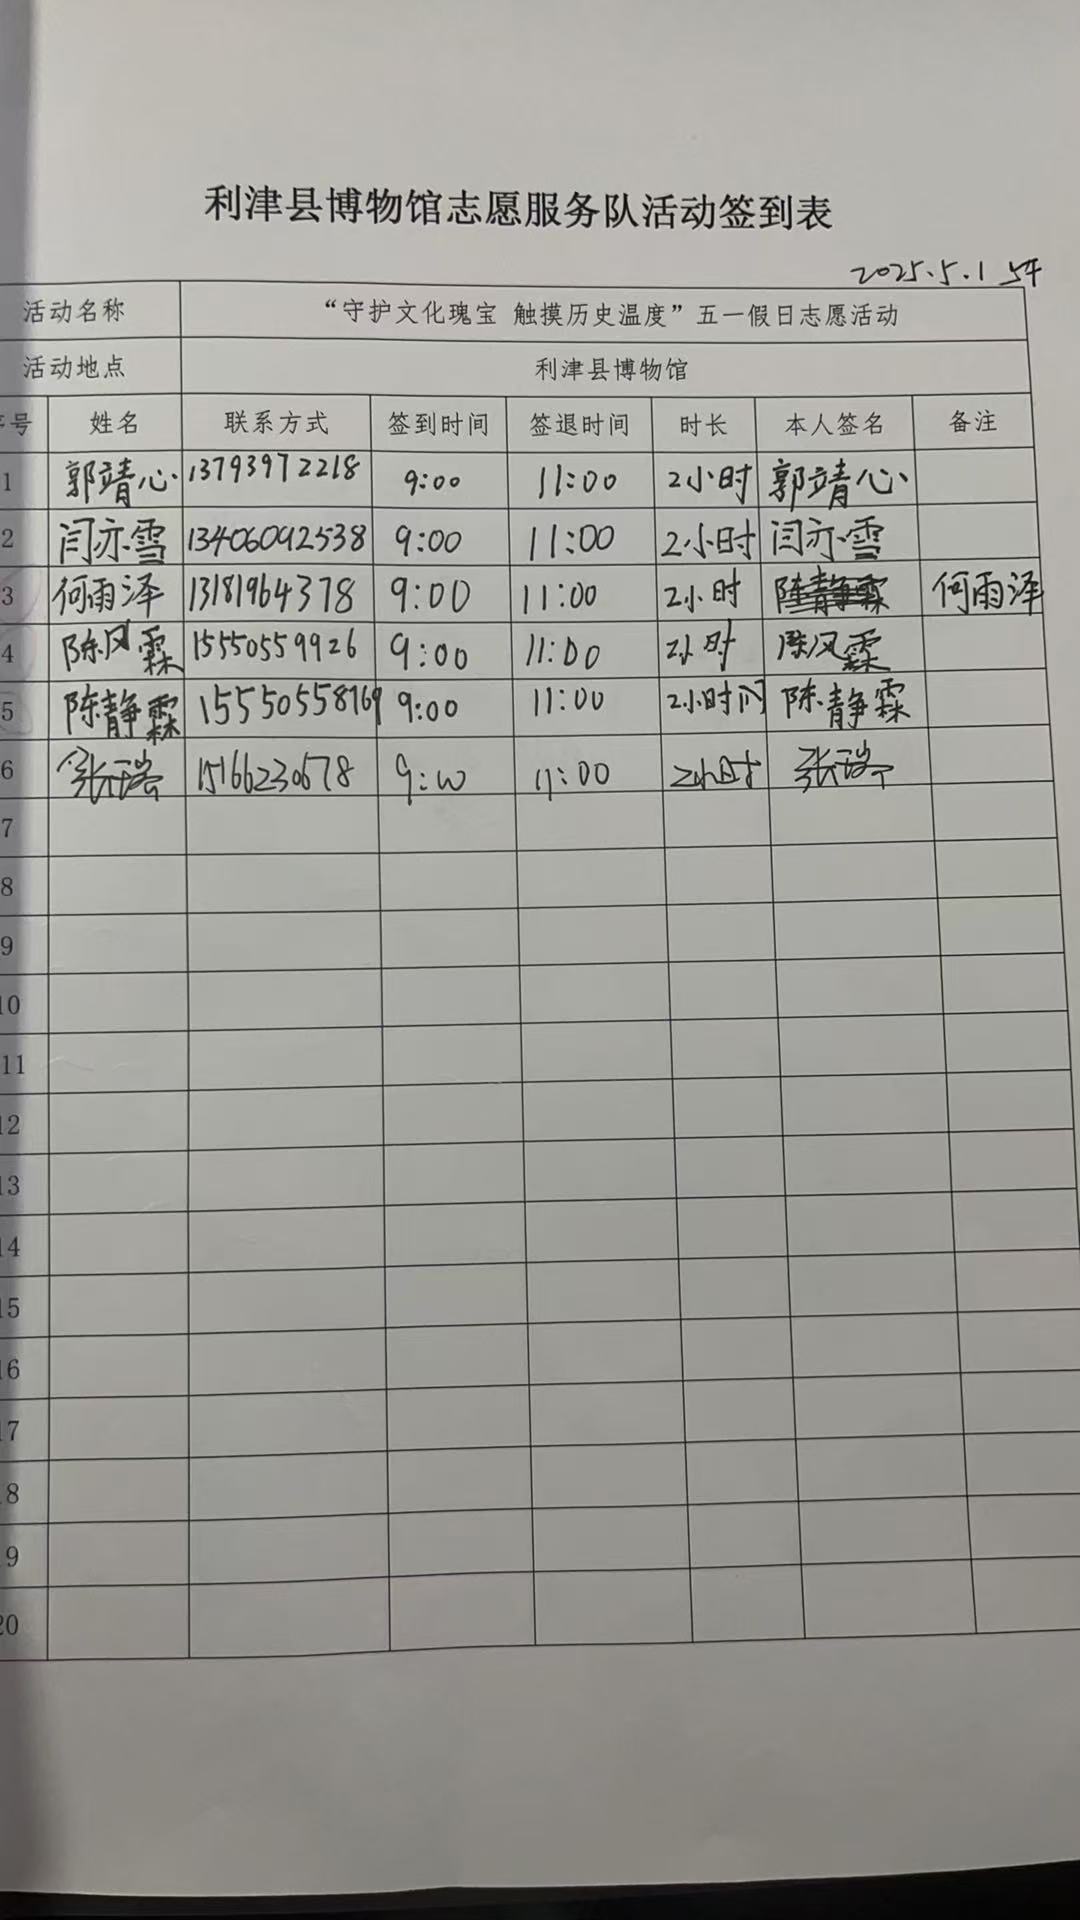 利津县博物馆志愿服务队活动签到表
2025.5.1
活动名称 “守护文化瑰宝 触摸历史温度”五一假日志愿活动
活动地点 利津县博物馆
序号 姓名 联系方式 签到时间 签退时间 时长 本人签名 备注
1 郭靖心 13793972218 9:00 11:00 2小时 郭靖心
2 闫亦雪 13406092538 9:00 11:00 2小时 闫亦雪
3 何雨泽 13181964378 9:00 11:00 2小时 何雨泽
4 陈风霖 15550559926 9:00 11:00 2小时 陈风霖
5 陈静霖 15550558769 9:00 11:00 2小时间 陈静霖
6 张瑞 9:00 11:00 2小时 张瑞
7
8
9
10
11
12
13
14
15
16
17
18
19
20